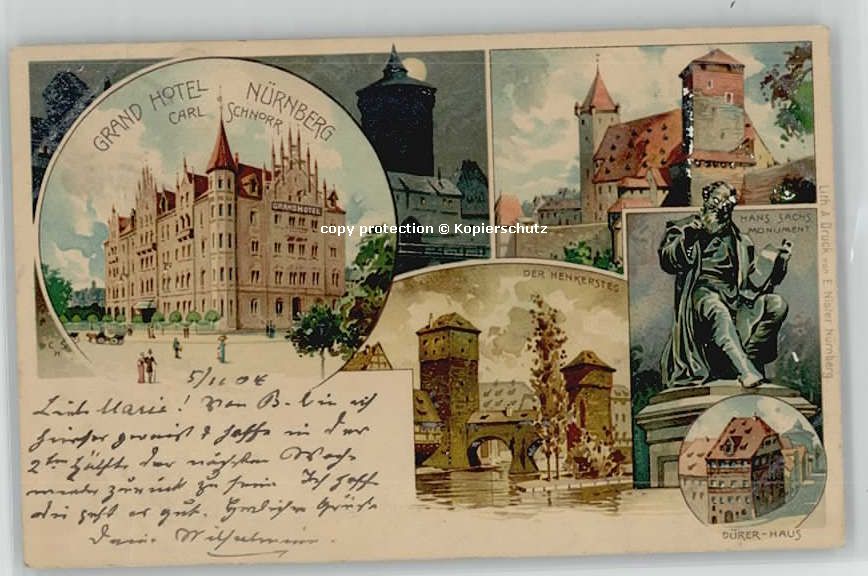 GRAND HOTEL NÜRNBERG
CARL SCHNORR
GRAND HOTEL
copy protection © Kopierschutz
HANS SACHS
MONUMENT
DER HENKERSTEG
Lith. & Druck von E. Nister Nürnberg
DÜRER-HAUS
5/11 04
Liebe Marie! Von B. bin ich
hierher gereist & hoffe in der
2ten Hälfte der nächsten Woche
wieder zurück zu sein. Ich hoffe
geht es gut. Herzliche Grüsse
Deine Wilhelmine.